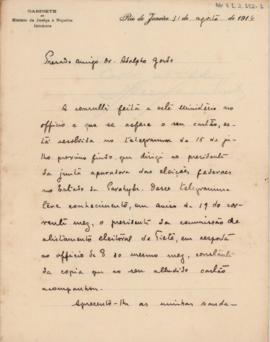 GABINETE
do
Ministro da Justiça e Negocios
Interiores
Rio de Janeiro, 21 de agosto de 191
Prezado amigo Dr. Adolpho Gordo
A consulta feita a este Ministerio no
officio a que se refere o seu cartão, es-
tá resolvida no telegramma de 15 de ju-
lho, proximo findo, que dirigi ao presidente
da junta apuradora das eleições federaes
no Estado da Parahyba. Desse telegramma
teve conhecimento, em aviso de 19 do cor-
rente mez, o presidente da commissão de
alistamento eleitoral de Tieté, em resposta
ao officio de 8 do mesmo mez, constante
da copia que ao seu alludido cartão
acompanhou.
Apresento-lhe as minhas sauda-